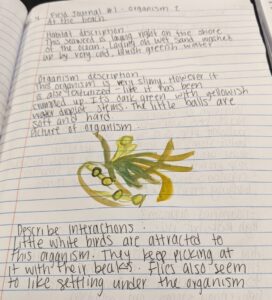 Field Journal #1 - Organism 2
At the beach
Habitat description
This seaweed is laying right on the shore
of the ocean. Laying on wet sand washed
up by very cold, bluish greenish water.
Organism description
This organism is very slimy. However it
is also texturized - like it has been
crumpled up. Its dark green with yellowish
water droplet stems. The little "balls" are
soft and hard.
Picture of organism
Describe intractions:
Little white birds are attracted to
this organism. They keep picking at
it with their beaks. Flies also seem
to like settling under the organism